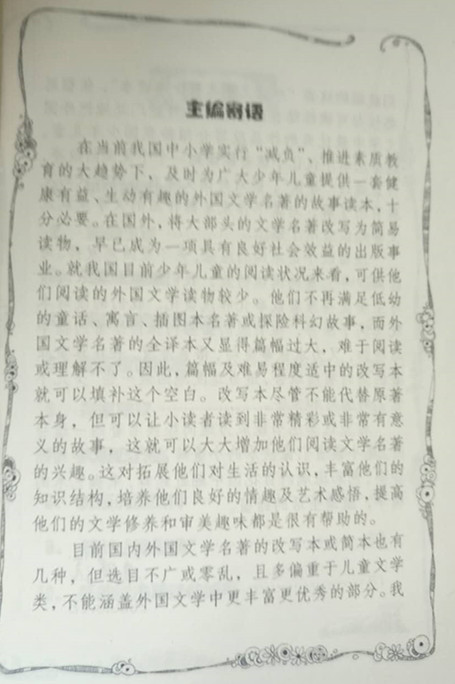 主编寄语
在当前我国中小学实行“减负”、推进素质教
育的大趋势下，及时为广大少年儿童提供一套健
康有益、生动有趣的外国文学名著的故事读本，十
分必要。在国外，将大部头的文学名著改写为简易
读物，早已成为一项具有良好社会效益的出版事
业。就我国目前少年儿童的阅读状况来看，可供他
们阅读的外国文学读物较少。他们不再满足低幼
的童话、寓言、插图本名著或探险科幻故事，而外
国文学名著的全译本又显得篇幅过大，难于阅读
或理解不了。因此，篇幅及难易程度适中的改写本
就可以填补这个空白。改写本尽管不能代替原著
本身，但可以让小读者读到非常精彩或非常有意
义的故事，这就可以大大增加他们阅读文学名著
的兴趣。这对拓展他们对生活的认识，丰富他们的
知识结构，培养他们良好的情趣及艺术感悟，提高
他们的文学修养和审美趣味都是很有帮助的。
目前国内外国文学名著的改写本或简本也有
几种，但选目不广或零乱，且多偏重于儿童文学
类，不能涵盖外国文学中更丰富更优秀的部分。我